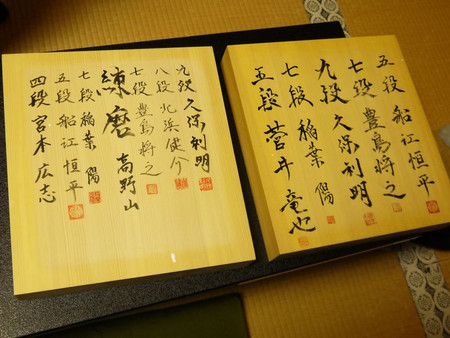 五段 船江恒平
七段 豊島将之
九段 久保利明
七段 稲葉 陽
五段 菅井竜也
九段 久保利明
八段 北浜健介
七段 豊島将之
練磨 高野山
七段 稲葉 陽
五段 船江恒平
四段 宮本広志